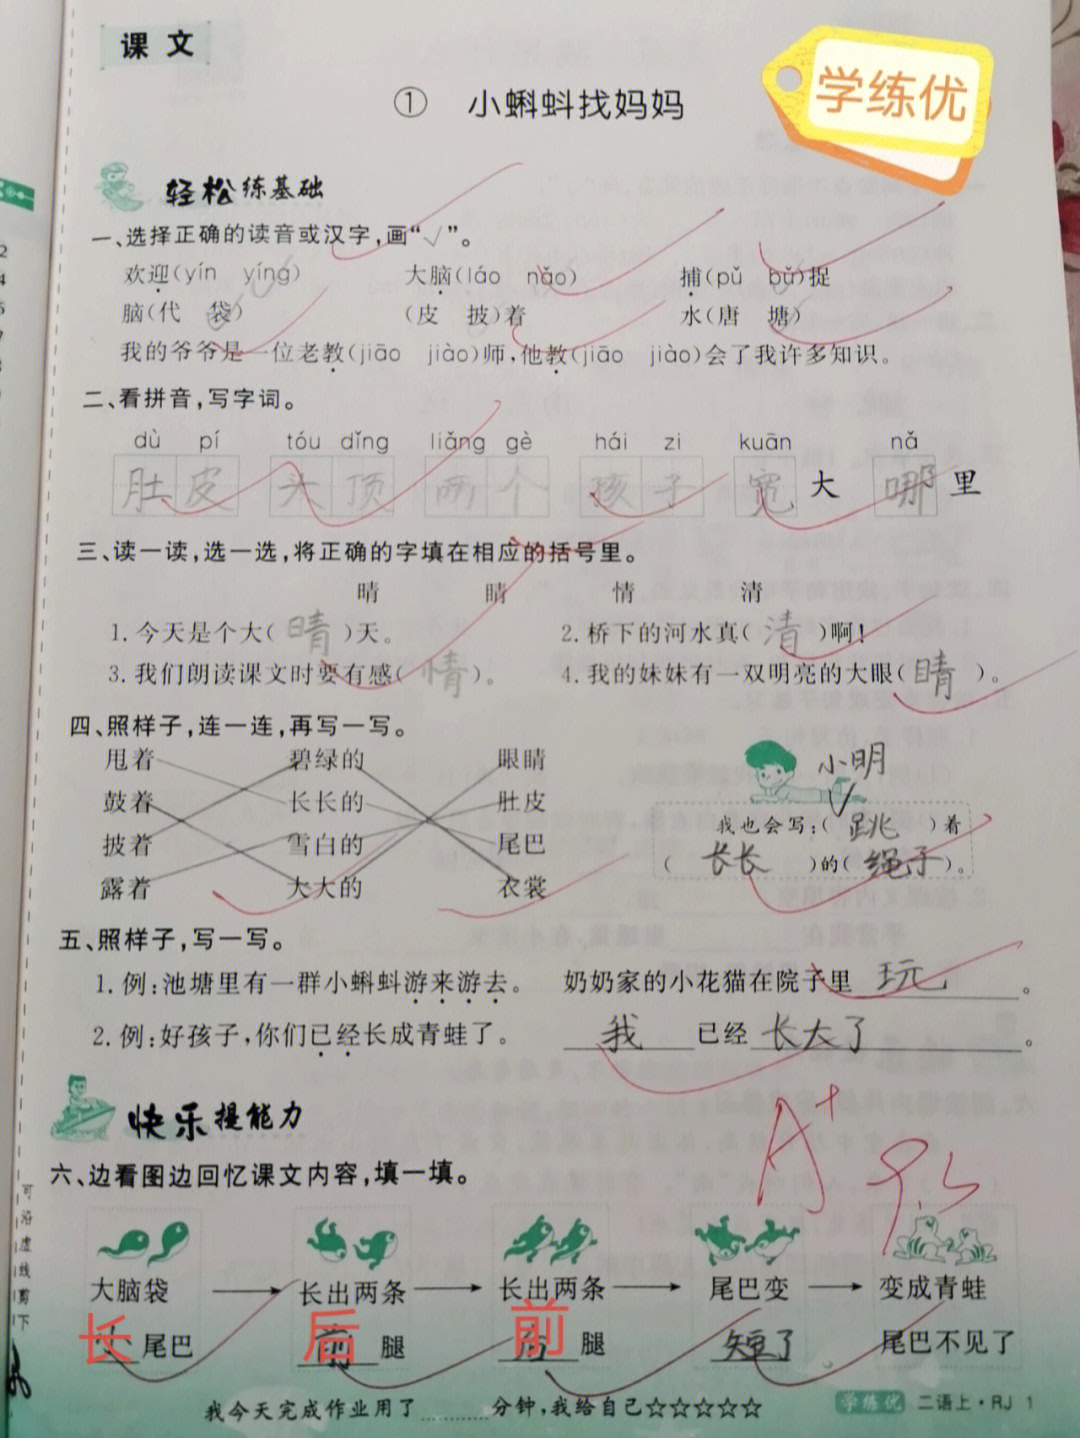 课文
学练优
① 小蝌蚪找妈妈
轻松练基础
一、选择正确的读音或汉字,画“√”。
欢迎(yín yíng) 大脑(láo nǎo) 捕(pǔ bǔ)捉
脑(代 袋) (皮 披)着 水(唐 塘)
我的爷爷是一位老教(jiāo jiào)师,他教(jiāo jiào)会了我许多知识。
二、看拼音,写字词。
dù pí tóu dǐng liǎng gè hái zi kuān nǎ
肚皮 头顶 两个 孩子 宽大 哪里
三、读一读,选一选,将正确的字填在相应的括号里。
晴 睛 情 清
1.今天是个大(晴)天。 2.桥下的河水真(清)啊!
3.我们朗读课文时要有感(情)。 4.我的妹妹有一双明亮的大眼(睛)。
四、照样子,连一连,再写一写。
甩着 碧绿的 眼睛
鼓着 长长的 肚皮
披着 雪白的 尾巴
露着 大大的 衣裳
小明
我也会写:(跳)着
(长长)的(绳子)。
五、照样子,写一写。
1.例:池塘里有一群小蝌蚪游来游去。 奶奶家的小花猫在院子里玩。
2.例:好孩子,你们已经长成青蛙了。 我已经长大了。
快乐提能力
A+
六、边看图边回忆课文内容,填一填。
大脑袋 长出两条 长出两条 尾巴变 变成青蛙
长尾巴 后 前腿 前腿 短了 尾巴不见了
可沿虚线剪下
我今天完成作业用了 分钟,我给自己☆☆☆☆☆
学练优 二语上·RJ 1